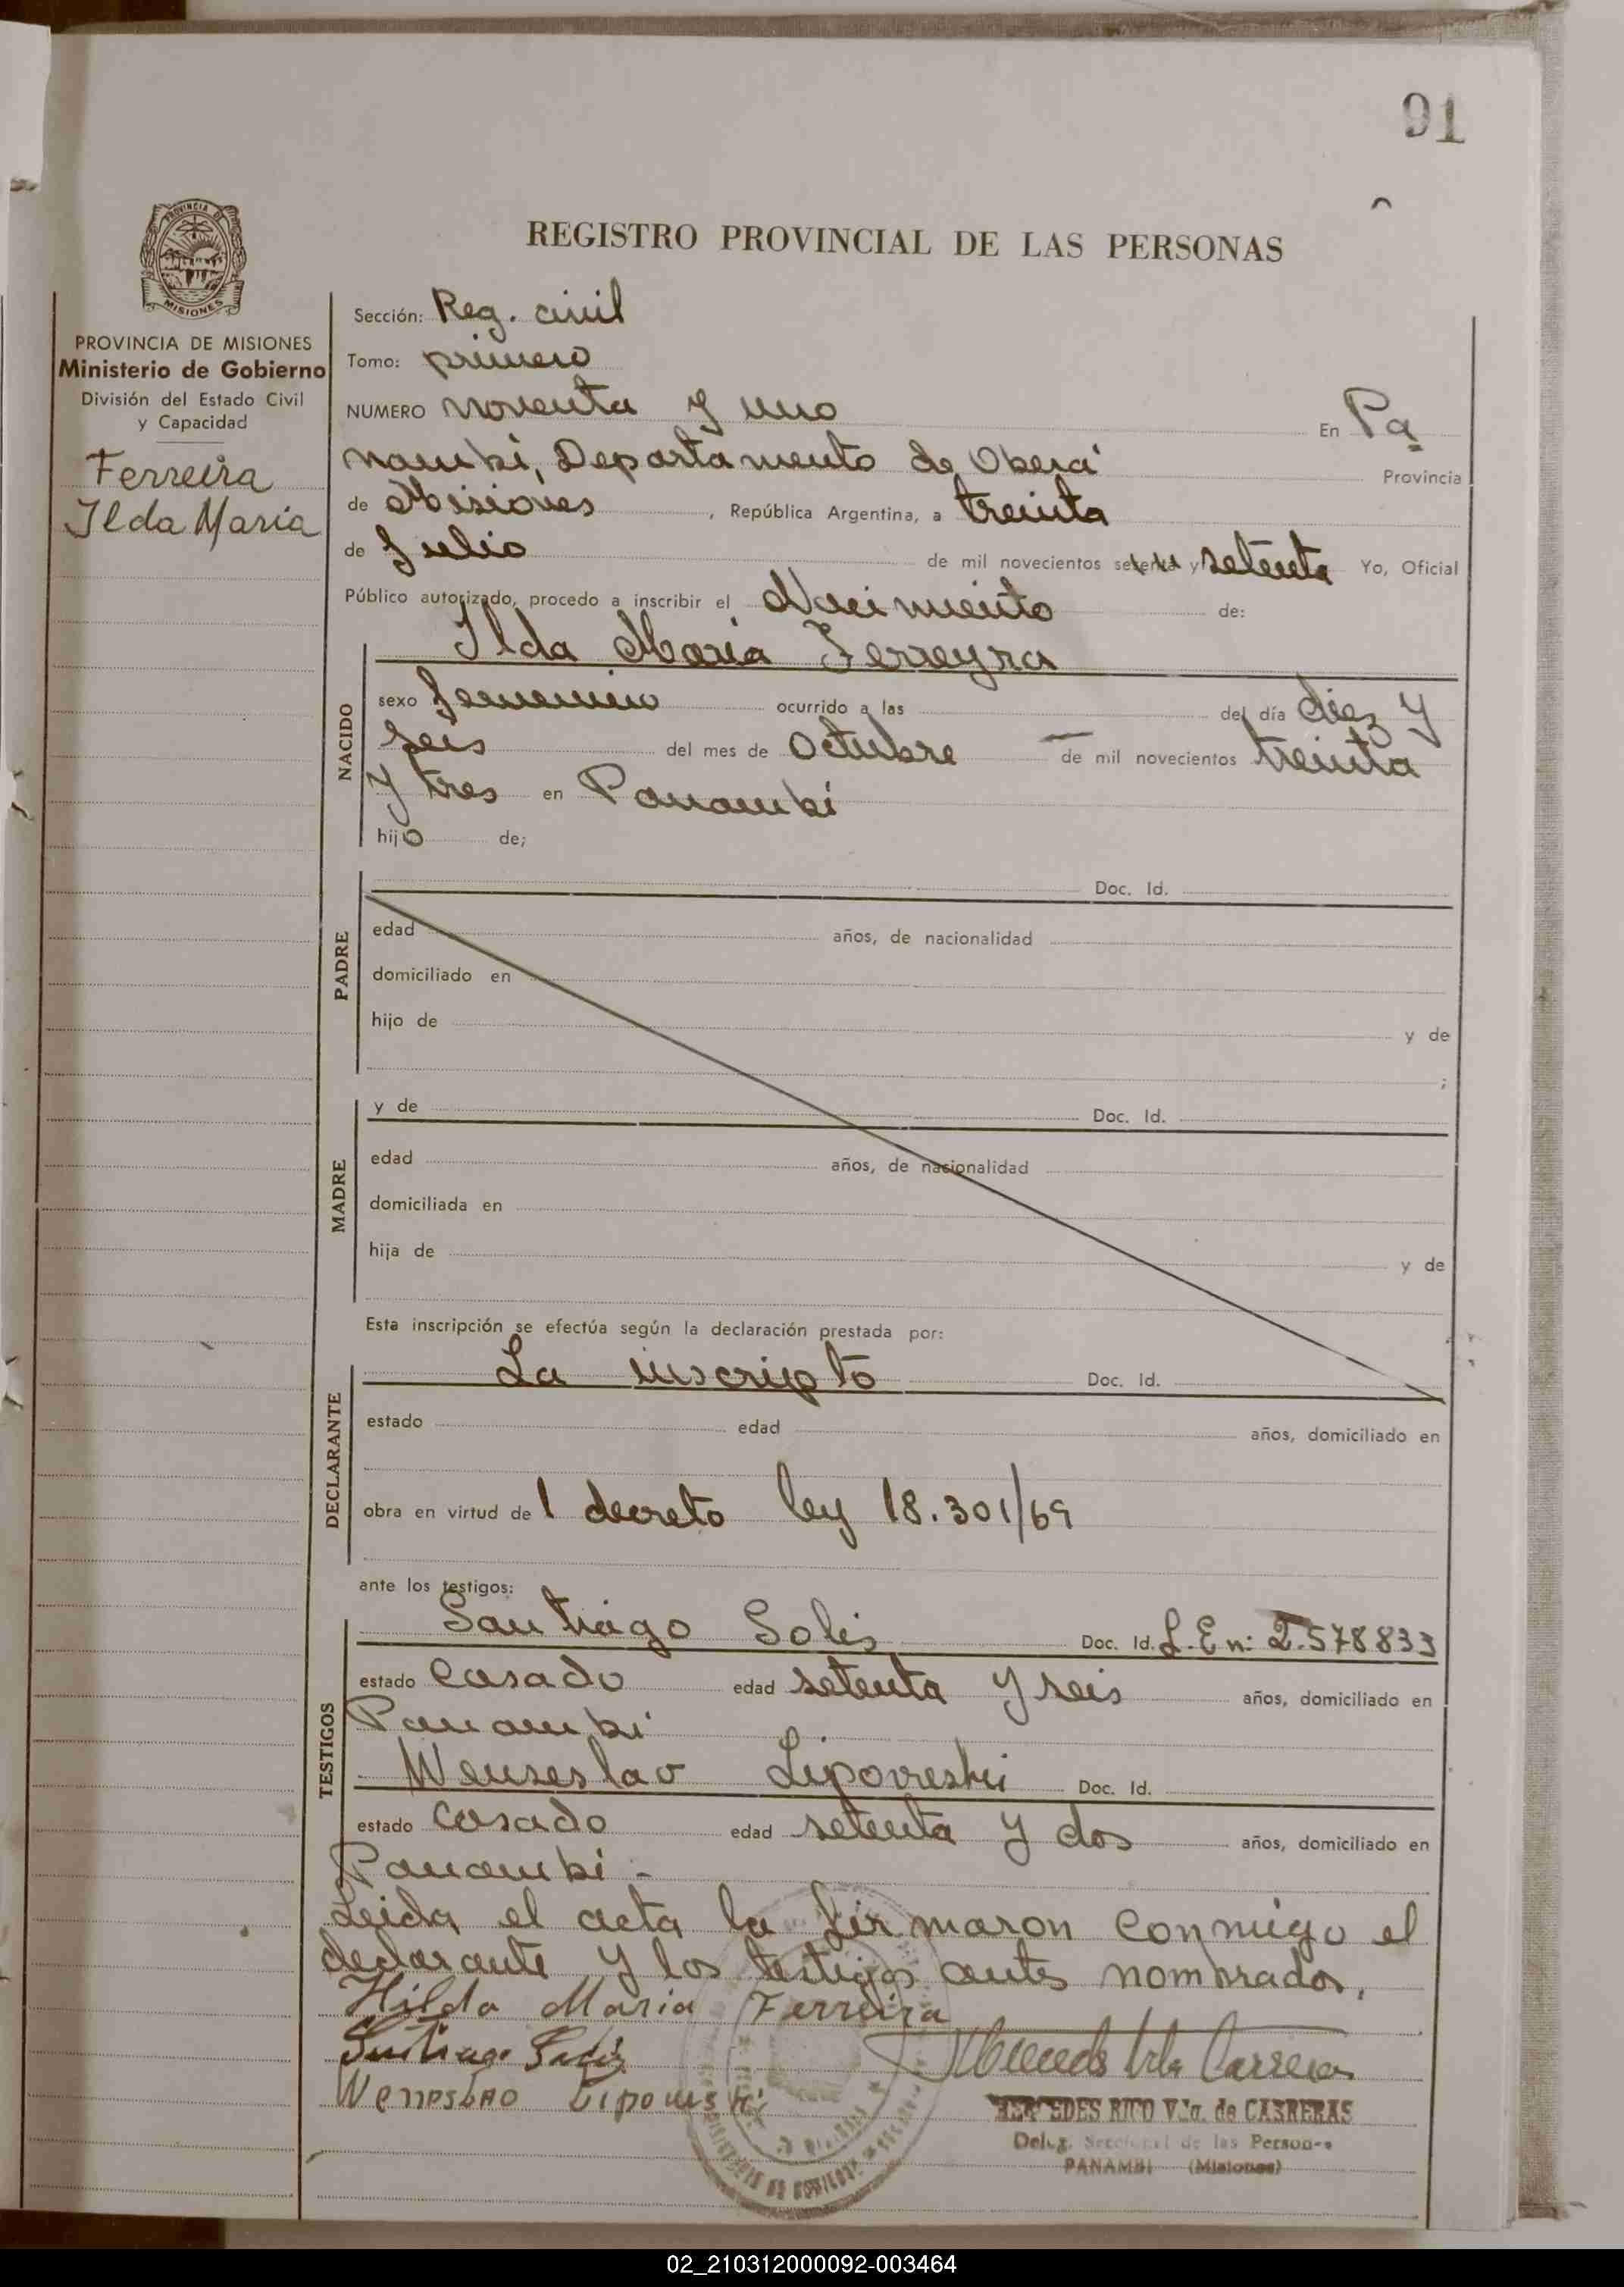 91
REGISTRO PROVINCIAL DE LAS PERSONAS
PROVINCIA DE MISIONES
Ministerio de Gobierno
División del Estado Civil
y Capacidad
Ferreira
Ilda Maria
Sección: Reg. civil
Tomo: primero
NUMERO noventa y uno En Pa
nambí, Departamento de Oberá Provincia
de Misiones, República Argentina, a treinta
de Julio de mil novecientos setenta Yo, Oficial
Público autorizado, procedo a inscribir el Nacimiento de:
Ilda Maria Ferreyra
NACIDO
sexo femenino ocurrido a las del día diez y
seis del mes de Octubre de mil novecientos treinta
y tres en Panambí
hijo de;
PADRE
Doc. Id.
edad años, de nacionalidad
domiciliado en
hijo de y de
;
MADRE
y de Doc. Id.
edad años, de nacionalidad
domiciliada en
hija de y de
Esta inscripción se efectúa según la declaración prestada por:
DECLARANTE
La inscripto Doc. Id.
estado edad años, domiciliado en
obra en virtud de l decreto ley 18.301/69
ante los testigos:
TESTIGOS
Santiago Solis Doc. Id. L. E n: 2.578833
estado casado edad setenta y seis años, domiciliado en
Panambi
Wenseslao Lipovreski Doc. Id.
estado casado edad setenta y dos años, domiciliado en
Panambi-
Leida el acta la firmaron conmigo el
declarante y los testigos antes nombrados.
Hilda Maria Ferreira
Santiago
MERCEDES RICO Vda. de CARRERAS
Deleg. Seccional de las Personas
PANAMBI (Misiones)
02_210312000092-003464